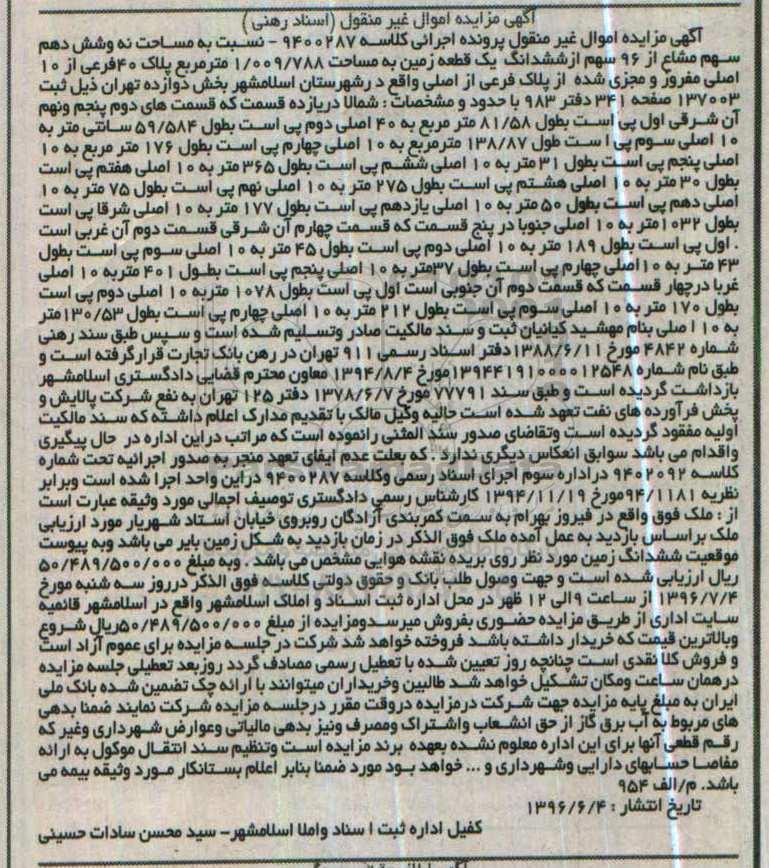 آگهی مزایده اموال غیر منقول (اسناد رهنی)
آگهی مزایده اموال غیر منقول پرونده اجرائی کلاسه ۹۴۰۰۲۸۷ - نسبت به مساحت نه وشش دهم
سهم مشاع از ۹۶ سهم ازششدانگ یک قطعه زمین به مساحت ۱/۰۰۹/۷۸۸ مترمربع پلاک ۴۰فرعی از ۱۰
اصلی مفروز و مجزی شده از پلاک فرعی از اصلی واقع د رشهرستان اسلامشهر بخش دوازده تهران ذیل ثبت
۱۳۷۰۰۳ صفحه ۳۴۱ دفتر ۹۸۳ با حدود و مشخصات : شمالا دریازده قسمت که قسمت های دوم پنجم ونهم
آن شرقی اول پی است بطول ۸۱/۵۸ متر مربع به ۴۰ اصلی دوم پی است بطول ۵۹/۵۸۴ سانتی متر به
۱۰ اصلی سوم پی ا ست طول ۱۳۸/۸۷ مترمربع به ۱۰ اصلی چهارم پی است بطول ۱۷۶ متر مربع به ۱۰
اصلی پنجم پی است بطول ۳۱ متر به ۱۰ اصلی ششم پی است بطول ۳۶۵ متر به ۱۰ اصلی هفتم پی است
بطول ۳۰ متر به ۱۰ اصلی هشتم پی است بطول ۲۷۵ متر به ۱۰ اصلی نهم پی است بطول ۷۵ متر به ۱۰
اصلی دهم پی است بطول ۵۰ متر به ۱۰ اصلی یازدهم پی است بطول ۱۷۷ متر به ۱۰ اصلی شرقا پی است
بطول ۱۰۳۲متر به ۱۰ اصلی جنوبا در پنج قسمت که قسمت چهارم آن شرقی قسمت دوم آن غربی است
. اول پی است بطول ۱۸۹ متر به ۱۰ اصلی دوم پی است بطول ۴۵ متر به ۱۰ اصلی سوم پی است بطول
۴۳ متر به ۱۰اصلی چهارم پی است بطول ۳۷متر به ۱۰ اصلی پنجم پی است بطول ۴۰۱ متربه ۱۰ اصلی
غربا درچهار قسمت که قسمت دوم آن جنوبی است اول پی است بطول ۱۰۷۸ متربه ۱۰ اصلی دوم پی است
بطول ۱۷۰ متر به ۱۰ اصلی سوم پی است بطول ۲۱۲ متر به ۱۰ اصلی چهارم پی است بطول ۱۳۰/۵۳متر
به ۱۰ ا صلی بنام مهشید کیانیان ثبت و سند مالکیت صادر وتسلیم شده است و سپس طبق سند رهنی
شماره ۴۸۴۲ مورخ ۱۳۸۸/۶/۱۱دفتر اسناد رسمی ۹۱۱ تهران در رهن بانک تجارت قرارگرفته است و
طبق نام شماره ۱۳۹۴۴۱۹۱۰۰۰۰۱۲۵۴۸مورخ ۱۳۹۴/۸/۴ معاون محترم قضایی دادگستری اسلامشهر
بازداشت گردیده است و طبق سند ۷۷۷۹۱ مورخ ۱۳۷۸/۶/۷ دفتر ۱۲۵ تهران به نفع شرکت پالایش و
پخش فرآورده های نفت تعهد شده است حالیه وکیل مالک با تقدیم مدارک اعلام داشته که سند مالکیت
اولیه مفقود گردیده است وتقاضای صدور سند المثنی رانموده است که مراتب دراین اداره در حال پیگیری
واقدام می باشد سوابق انعکاس دیگری ندارد . که بعلت عدم ایفای تعهد منجر به صدور اجرائیه تحت شماره
کلاسه ۹۴۰۲۰۹۲ دراداره سوم اجرای اسناد رسمی وکلاسه ۹۴۰۰۲۸۷ دراین واحد اجرا شده است وبرابر
نظریه ۹۴/۱۱۸۱مورخ ۱۳۹۴/۱۱/۱۹ کارشناس رسمی دادگستری توصیف اجمالی مورد وثیقه عبارت است
از : ملک فوق واقع در فیروز بهرام به سمت کمربندی آزادگان روبروی خیابان استاد شهریار مورد ارزیابی
ملک براساس بازدید به عمل آمده ملک فوق الذکر در زمان بازدید به شکل زمین بایر می باشد وبه پیوست
موقعیت ششدانگ زمین مورد نظر روی بریده نقشه هوایی مشخص می باشد . وبه مبلغ ۵۰/۴۸۹/۵۰۰/۰۰۰
ریال ارزیابی شده است و جهت وصول طلب بانک و حقوق دولتی کلاسه فوق الذکر درروز سه شنبه مورخ
۱۳۹۶/۷/۴ از ساعت ۹الی ۱۲ ظهر در محل اداره ثبت اسناد و املاک اسلامشهر واقع در اسلامشهر قائمیه
سایت اداری از طریق مزایده حضوری بفروش میرسدومزایده از مبلغ ۵۰/۴۸۹/۵۰۰/۰۰۰ریال شروع
وبالاترین قیمت که خریدار داشته باشد فروخته خواهد شد شرکت در جلسه مزایده برای عموم آزاد است
و فروش کلا نقدی است چنانچه روز تعیین شده با تعطیل رسمی مصادف گردد روزبعد تعطیلی جلسه مزایده
درهمان ساعت ومکان تشکیل خواهد شد طالبین وخریداران میتوانند با ارائه چک تضمین شده بانک ملی
ایران به مبلغ پایه مزایده جهت شرکت درمزایده دروقت مقرر درجلسه مزایده شرکت نمایند ضمنا بدهی
های مربوط به آب برق گاز از حق انشعاب واشتراک ومصرف ونیز بدهی مالیاتی وعوارض شهرداری وغیر که
رقم قطعی آنها برای این اداره معلوم نشده بعهده برند مزایده است وتنظیم سند انتقال موکول به ارائه
مفاصا حسابهای دارایی وشهرداری و ... خواهد بود مورد ضمنا بنابر اعلام بستانکار مورد وثیقه بیمه می
باشد. م/الف ۹۵۴
تاریخ انتشار : ۱۳۹۶/۶/۴
کفیل اداره ثبت ا سناد واملا اسلامشهر- سید محسن سادات حسینی